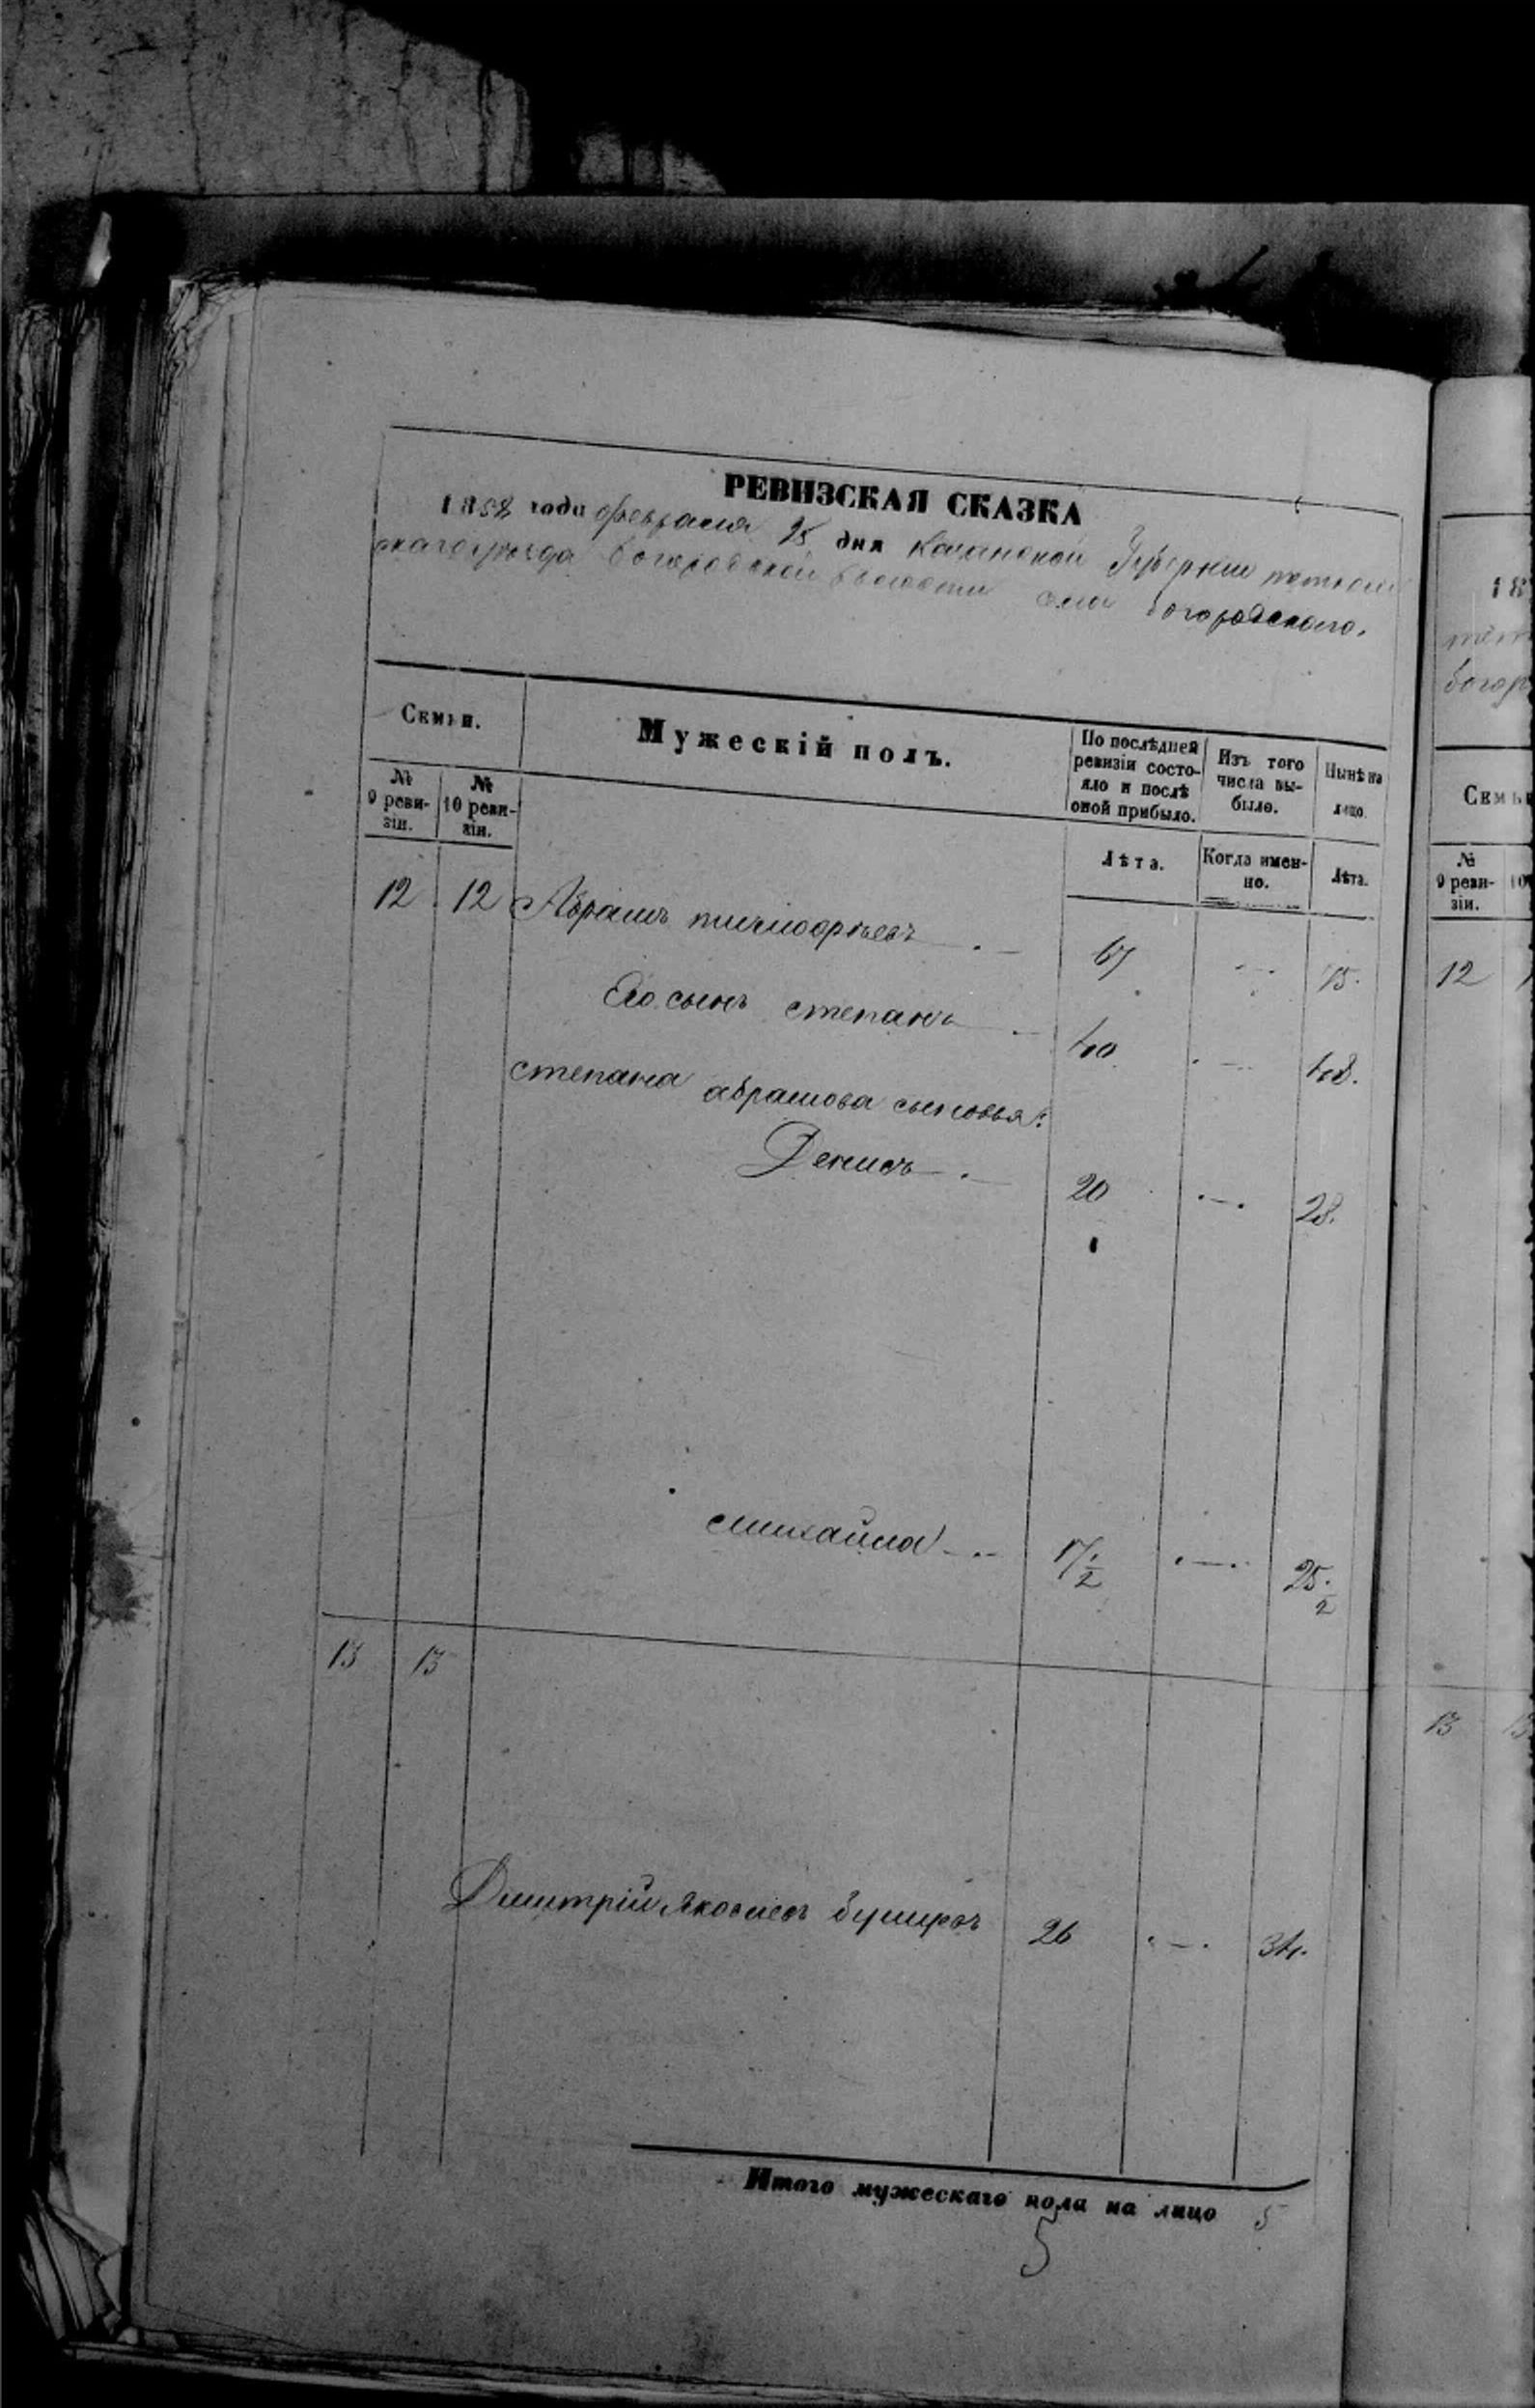 РЕВИЗСКАЯ СКАЗКА
1858 года февраля 25 дня Казанской Губернiи тетюш
скаго уѣзда богородской волости села богородского.
Семьи.
Мужескій полъ.
По послѣдней ревизіи состояло и послѣ оной прибыло.
Изъ того числа выбыло.
Нынѣ на лицо.
№ 9 ревизіи.
№ 10 ревизіи.
Лѣта.
Когда именно.
Лѣта.
12 12 Абрамъ тимофѣевъ 67 75.
Его сынъ степанъ 40 48.
степана абрамова сыновья:
Денисъ 20 28.
михайла 17 1/2 25 1/2
13 13
Дмитрій Яковлевъ 26 34.
Итого мужескаго пола на лицо 5
5
18
богор
Семьи
№ 9 ревизіи.
10
12
13 13